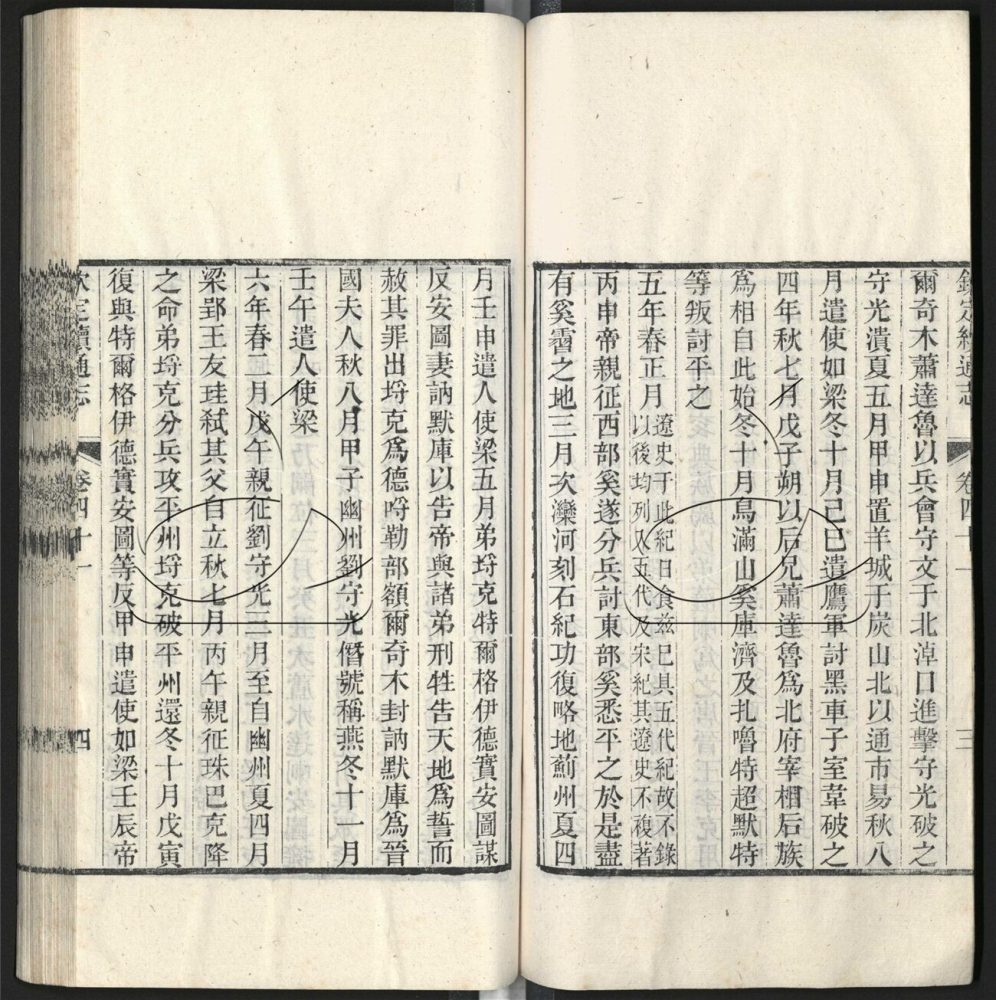 欽定續通志 卷四十一 三
爾奇木蕭達魯以兵會守文于北淖口進擊守光破之
守光潰夏五月甲申置羊城于炭山北以通市易秋八
月遣使如梁冬十月己巳遣鷹軍討黑車子室韋破之
四年秋七月戊子朔以后兄蕭達魯爲北府宰相后族
爲相自此始冬十月烏滿山奚庫濟及扎嚕特超默特
等叛討平之
五年春正月遼史于此紀日食兹已具五代紀故不錄以後均列入五代及宋紀其遼史不複著
丙申帝親征西部奚遂分兵討東部奚悉平之於是盡
有奚霫之地三月次灤河刻石紀功復略地薊州夏四
月壬申遣人使梁五月弟埒克特爾格伊德實安圖謀
反安圖妻訥默庫以告帝與諸弟刑牲告天地爲誓而
赦其罪出埒克爲德哷勒部額爾奇木封訥默庫爲晉
國夫人秋八月甲子幽州劉守光僭號稱燕冬十一月
壬午遣人使梁
六年春二月戊午親征劉守光三月至自幽州夏四月
梁郢王友珪弒其父自立秋七月丙午親征珠巴克降
之命弟埒克分兵攻平州埒克破平州還冬十月戊寅
復與特爾格伊德實安圖等反甲申遣使如梁壬辰帝
欽定續通志 卷四十一 四